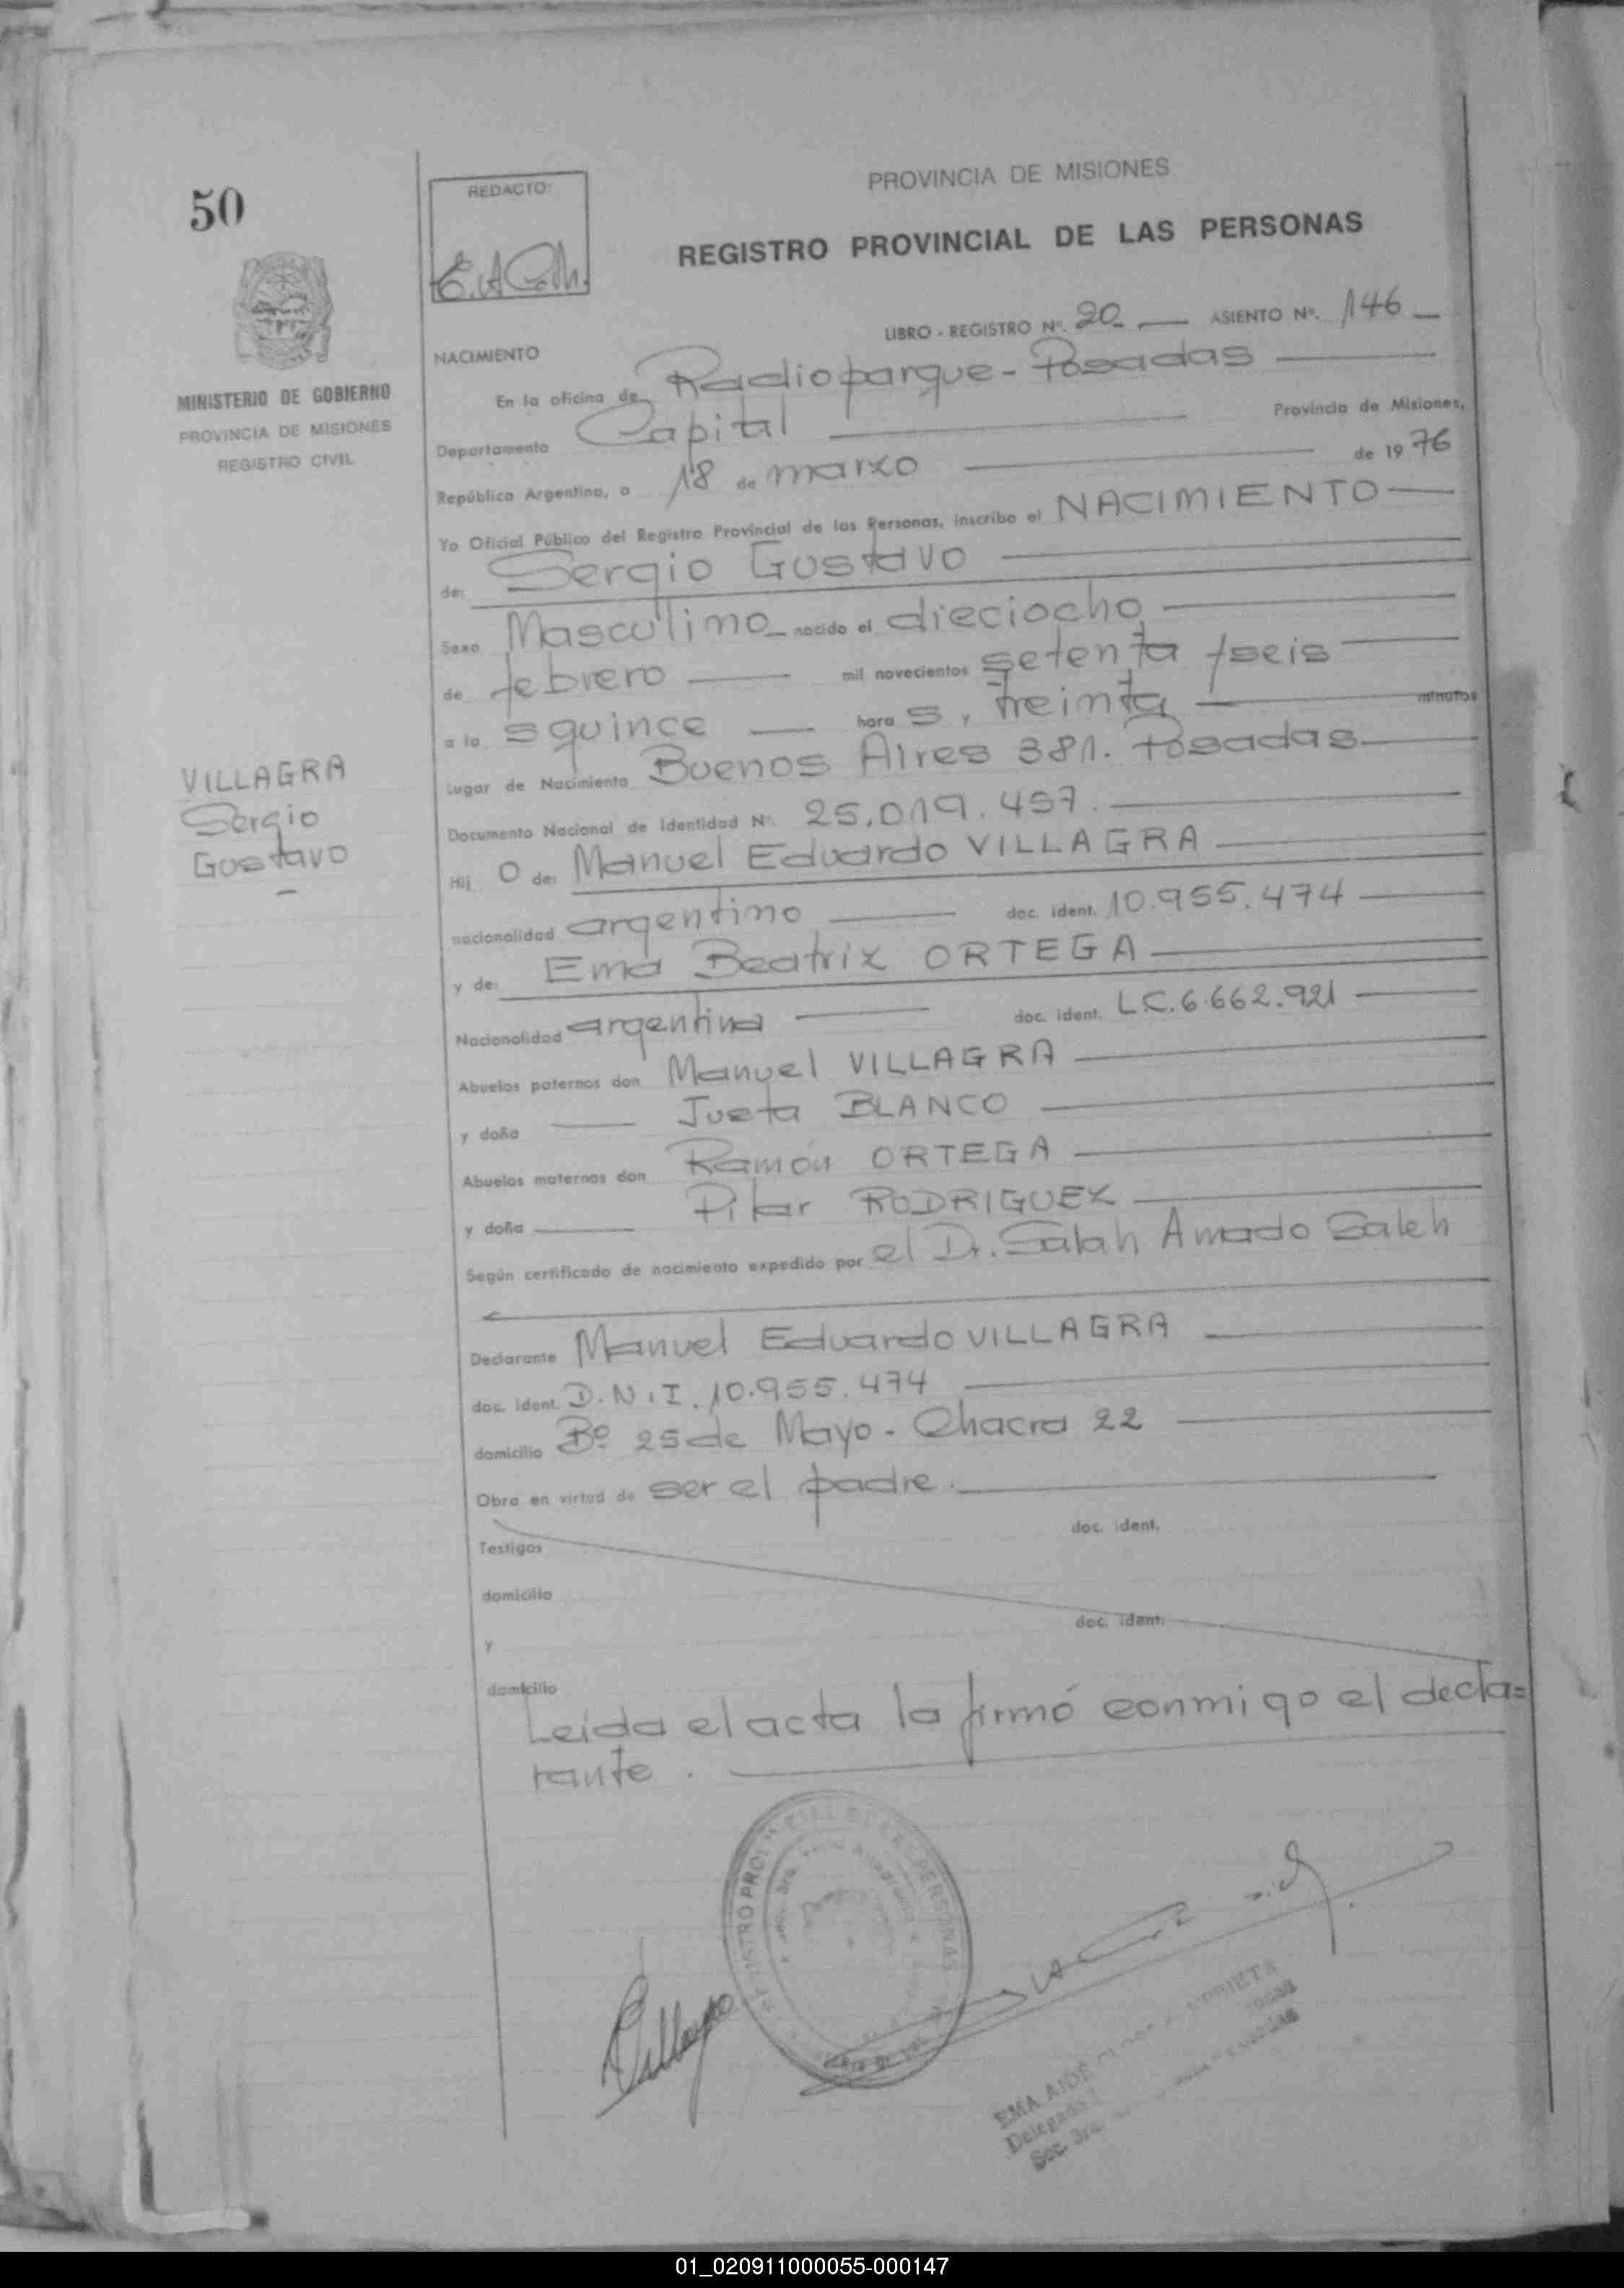 50
REDACTO:
PROVINCIA DE MISIONES
REGISTRO PROVINCIAL DE LAS PERSONAS
MINISTERIO DE GOBIERNO
PROVINCIA DE MISIONES
REGISTRO CIVIL
LIBRO - REGISTRO Nº. 20 ASIENTO Nº. 146
NACIMIENTO
En la oficina de Radioparque - Posadas
Departamento Capital Provincia de Misiones,
República Argentina, a 18 de marzo de 1976
Yo Oficial Público del Registro Provincial de las Personas, inscribo el NACIMIENTO
de: Sergio Gustavo
Sexo Masculino nacido el dieciocho
de febrero mil novecientos setenta y seis
a la s quince hora s y treinta minutos
VILLAGRA
Sergio
Gustavo
Lugar de Nacimiento Buenos Aires 381. Posadas
Documento Nacional de Identidad Nº. 25.019.457.
Hij o de: Manuel Eduardo VILLAGRA
nacionalidad argentino doc. ident. 10.955.474
y de: Ema Beatriz ORTEGA
Nacionalidad argentina doc. ident. L.C. 6.662.921
Abuelos paternos don Manuel VILLAGRA
y doña Justa BLANCO
Abuelos maternos don Ramón ORTEGA
y doña Pilar RODRIGUEZ
Según certificado de nacimiento expedido por el Dr. Salah Amado Saleh
Declarante Manuel Eduardo VILLAGRA
doc. ident. D.N.I. 10.955.474
domicilio Bº 25 de Mayo - Chacra 22
Obra en virtud de ser el padre.
doc. ident.
Testigos
domicilio
doc. ident.
y
domicilio
Leída el acta la firmó conmigo el decla=
rante.
Villagra
EMA AIDE
Delegada
Sec. 3ra.
01_020911000055-000147